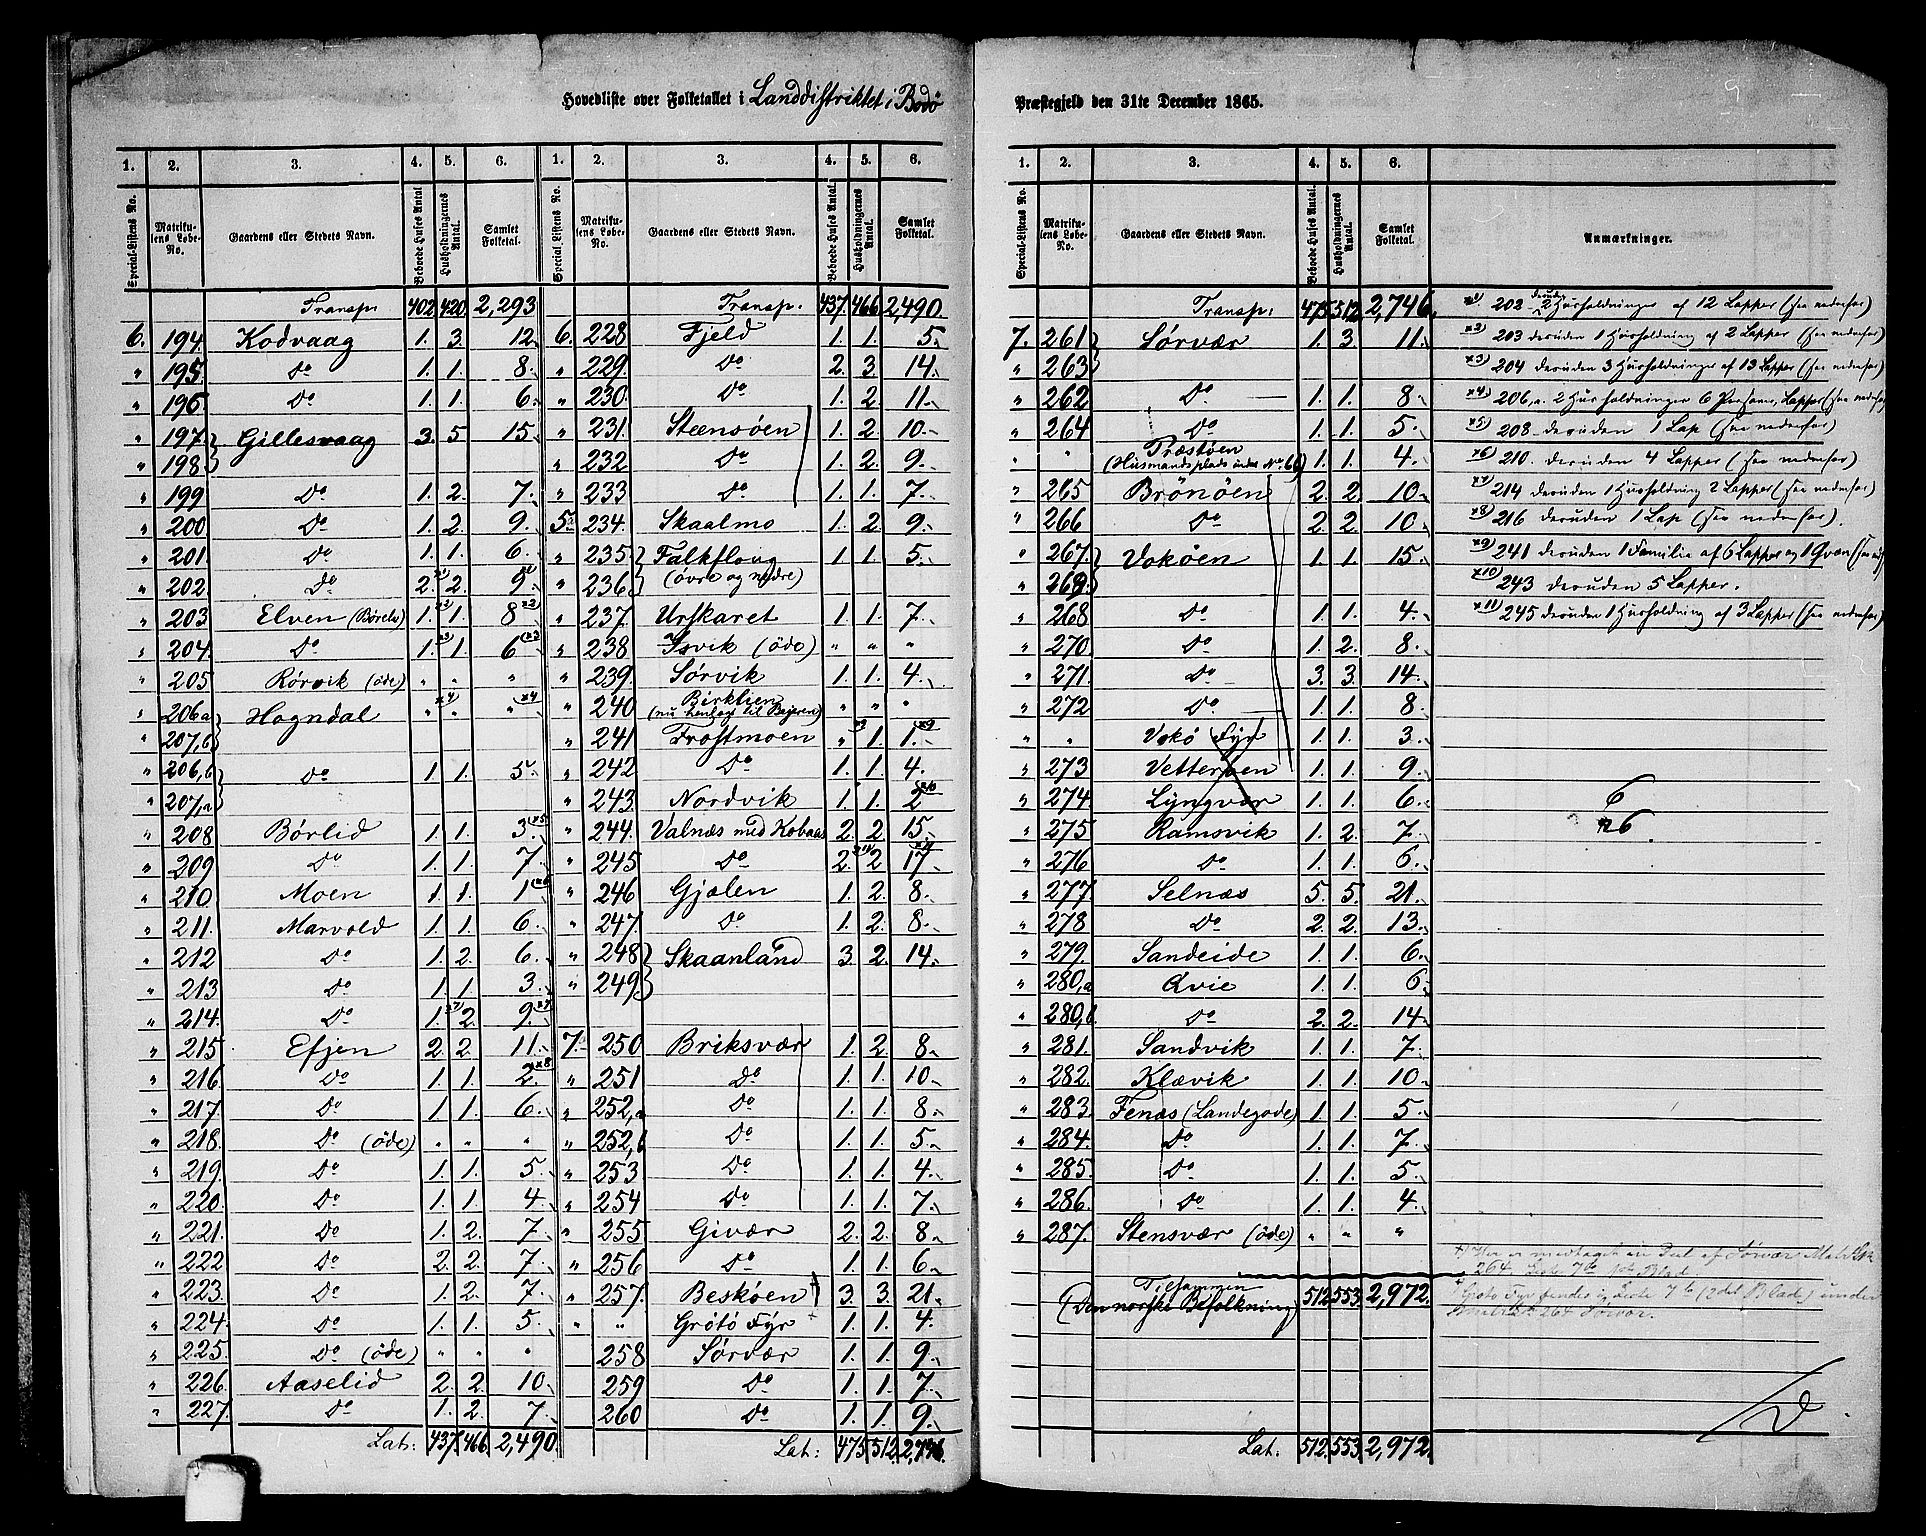 Hovedliste over Folketallet i Landdistriktet i Bodö
Præstegjeld den 31te December 1865.
1. 2. 3. 4. 5. 6. 1. 2. 3. 4. 5. 6.
Special-Listens No. Matrikulens Løbe-No. Gaardens eller Stedets Navn. Beboede Huses Antal Husholdningernes Antal. Samlet Folketal. Special Listens No. Matrikulens Løbe-No. Gaardens eller Stedets Navn. Beboede Huses Antal. Husholdningernes Antal. Samlet Folketal.
Transp. 402 420. 2,293
6. 194. Kodvaag 1. 3. 12.
" 195. Do 1. 1. 8.
" 196. Do 1. 1. 6.
" 197. Gillesvaag 3. 5. 15.
" 198.
" 199 Do 1. 2. 7.
" 200 Do 1. 2. 9.
" 201. Do 1. 1. 6.
" 202. Do 2. x1) 2. 9. x1)
" 203 Elven (Børelv) 1. x2) 1. 8 x2)
" 204. Do 1. x3) 1. 6 (x3
" 205 Rørvik (öde) " " "
" 206a Hogndal " x4) " " x4
" 207,b
" 206,b Do 1. 1. 5.
" 207,a
" 208 Børlid 1. 1. 3. x5
" 209 Do 1. 1. 7.
" 210 Moen 1. 1. 1 x6
" 211. Marvold 1. 1. 6.
" 212 Do 1. 2. 6.
" 213 Do 1. 1. 3.
" 214. Do 1. x7) 2. 9. x7
" 215 Efjen 2. 2. 11.
" 216 Do 1. 1. 2. x8
" 217. Do 1. 1. 6.
" 218. Do (öde) " " "
" 219. Do 1. 1. 5.
" 220. Do 1. 1. 4.
" 221. Do 1. 2. 7.
" 222 Do 2. 2. 7.
" 223. Do 1. 2. 7.
" 224. Do 1. 1. 5.
" 225. Do (öde) " " "
" 226. Aaselid 2. 2. 10.
" 227. Do 1. 2. 7.
Lat: 437. 466. 2,490
Transp. 437. 466 2,490.
6. 228. Fjeld 1. 1. 5.
" 229. Do 2. 3. 14.
" 230. Do 1. 2. 11.
" 231. Steensöen 1. 2. 10.
" 232 Do 1. 2. 9.
" 233 Do 1. 1. 7.
5. 234. Skaalmo 1. 2. 9.
" 235 Falkflong 1. 1. 5.
" 236 (övre og nedre)
" 237. Urskaret 1. 1. 7.
" 238 Isvik (öde) " " "
" 239. Sørvik 1. 1. 4.
" 240 Birklien (nu henlagt til Bejeren) " " "
" 241 Frostmoen " x9 1. 1. x9
" 242 Do 1. 1. 4.
" 243. Nordvik 1. 1. 2 x10
" 244. Valnæs med Kobaas 2. 2. 15.
" 245 Do 2. x11) 2 17 x11
" 246 Gjælen 1. 2. 8.
" 247. Do 1. 2. 8.
" 248 Skaanland 3. 2. 14.
" 249.
7. 250 Briksvær 1. 2. 8.
" 251 Do 1. 1. 10.
" 252,a Do 1. 1. 8.
" 252,b Do 1. 1. 5.
" 253 Do 1. 1. 4.
" 254 Do 1. 1. 7.
" 255 Givær 2. 2. 8
" 256 Do 1. 1. 6.
" 257. Beskøen 3. 3. 21.
" " Grötö Fyr 1. 1. 4.
258 Sørvær 1. 1. 9.
259 Do 1. 1. 7.
260 Do 1. 1. 9.
Lat: 475 512. 2,746.
1. 2. 3. 4. 5. 6.
Special-Listens No. Matrikulens Løbe-No. Gaardens eller Stedets Navn. Beboede Huses Antal. Husholdningernes Antal. Samlet Folketal. Anmærkninger.
Transp: 475 512. 2,746.
7. 261 Sørvær 1. 3. 11.
" 263
" 262 Do 1. 1. 8.
" 264 Do 1. 1. 5.
" " Præstöen (Husmandsplads under No 66) 1. 1. 4.
" 265 Brönöen 2. 2. 10.
" 266 Do 2. 2. 10.
" 267. Vokøen 1. 1. 15.
" 269.
" 268 Do 1. 1. 4.
" 270 Do 1. 2. 8.
" 271. Do 3. 3. 14.
" 272 Do 1. 1. 8
" " Vokö Fyr 1. 1. 3.
" 273 Vetteröen 1. 1. 9
" 274 Lyngvær 1. 1. 6.
" 275 Ramsvik 1. 2. 7.
" 276 Do 1. 1. 6.
" 277. Selnæs 5. 5. 21.
" 278 Do 2. 2. 13.
" 279. Sandeide 1. 1. 6.
" 280,a Qvie 1. 1. 6
" 280,b. Do 2. 2. 14.
" 281. Sandvik 1. 1. 7.
" 282. Klævik 1. 1. 10.
" 283. Fenæs (Landegode) 1. 1. 5.
" 284. Do 1. 1. 7.
" 285. Do 1. 1. 5.
" 286. Do 1. 1. 4.
" 287. Stensvær (öde) " " "
Tilsammen
(Den norske Befolkning) 512 553. 2,972.
Lat. 512. 553. 2,972.
x1) 202 desuden 2 Husholdninger af 12 Lapper (see nedenfor)
x2) 203 desuden 1 Husholdning af 2 Lapper (see nedenfor)
x3) 204 desuden 3 Husholdninger af 13 Lapper (see nedenfor)
x4) 206,a. 2 Husholdninger 6 Personer, Lapper (see nedenfor
x5) 208 desuden 1 Lap (see nedenfor)
x6) 210. desuden 4 Lapper (see nedenfor)
x7) 214 desuden 1 Husholdning 2 Lapper (see nedenfor)
x8) 216 desuden 1 Lap (see nedenfor).
x9) 241 desuden 1 Familie af 6 Lapper og 1 Qvæn (see
x10) 243 desuden 5 Lapper.
x11) 245 desuden 1 Husholdning af 3 Lapper (see nedenfor)
6
26
+) Her er medtaget en Deel af Sørvær Matr.
264. Liste 7b 1ste Blad.
+ Grötö Fyr findes i Liste 7b (2det Blad) under
264 Sørvær.